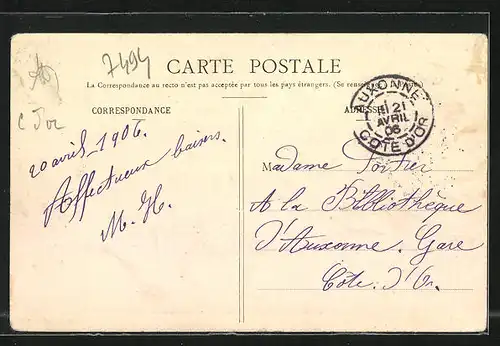 7494
CARTE POSTALE
La Correspondance au recto n'est pas acceptée par tous les pays étrangers. (Se rense
CORRESPONDANCE
ADRESSE
AUXONNE
21
AVRIL
06
COTE D'OR
C d'or
20 avril 1906.
Affectueux baisers.
M. H.
Madame Fortier
A la Bibliothèque
d'Auxonne. Gare
Côte. d'Or.